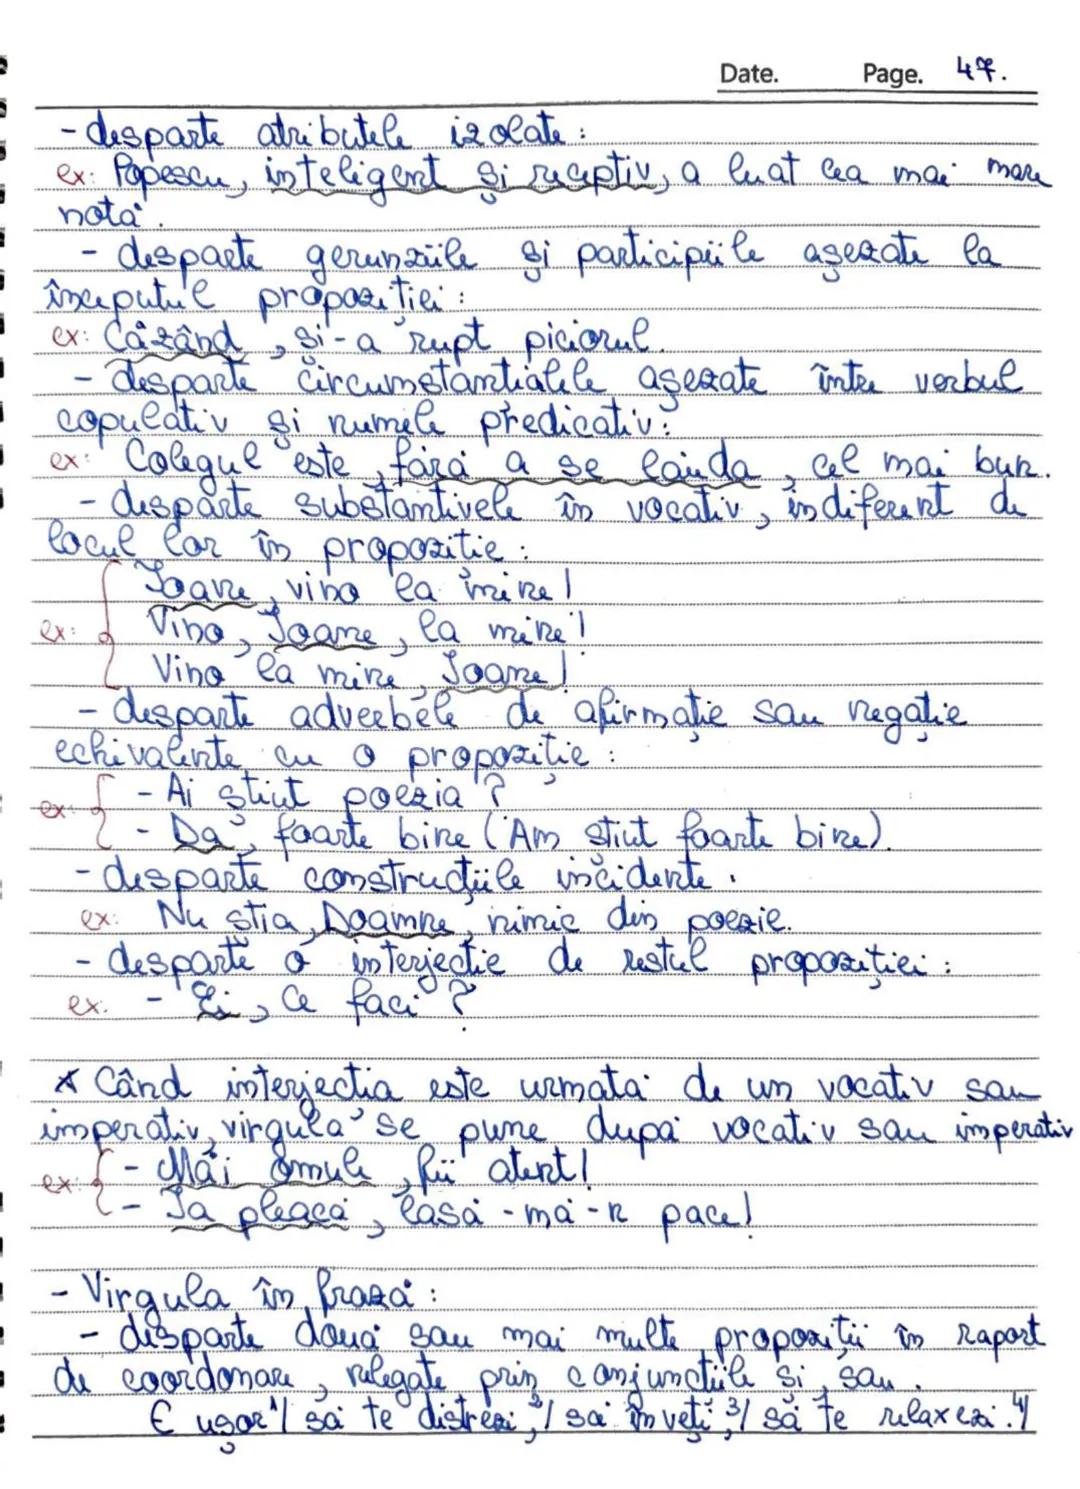 Date. Page. 47.
- desparte atributele izolate:
ex: Popescu, inteligent și receptiv, a luat cea mai mare
notă.
- desparte gerunziile și participiile așezate la
începutul propoziției:
ex: Căzând, și-a rupt piciorul.
- desparte circumstanțialele așezate între verbul
copulativ și numele predicativ:
ex: Colegul este, fără a se lăuda, cel mai bun.
- desparte substantivele în vocativ, indiferent de
locul lor în propoziție:
Ioane, vino la mine!
ex: Vino, Ioane, la mine!
Vino la mine, Ioane!
- desparte adverbele de afirmație sau negație
echivalente cu o propoziție:
ex: - Ai știut poezia?
- Da, foarte bine (Am știut foarte bine).
- desparte construcțiile incidente.
ex: Nu știa, Doamne, nimic din poezie.
- desparte o interjecție de restul propoziției:
ex. - Ei, ce faci?
* Când interjecția este urmată de un vocativ sau
imperativ, virgula se pune după vocativ sau imperativ
ex: - Măi omule, fii atent!
- Ia pleacă, lasă-mă-n pace!
- Virgula în frază:
- desparte două sau mai multe propoziții în raport
de coordonare, relegate prin conjuncțiile și, sau.
E ușor 1/ să te distrezi, 2/ să înveți, 3/ să te relaxezi. 4/